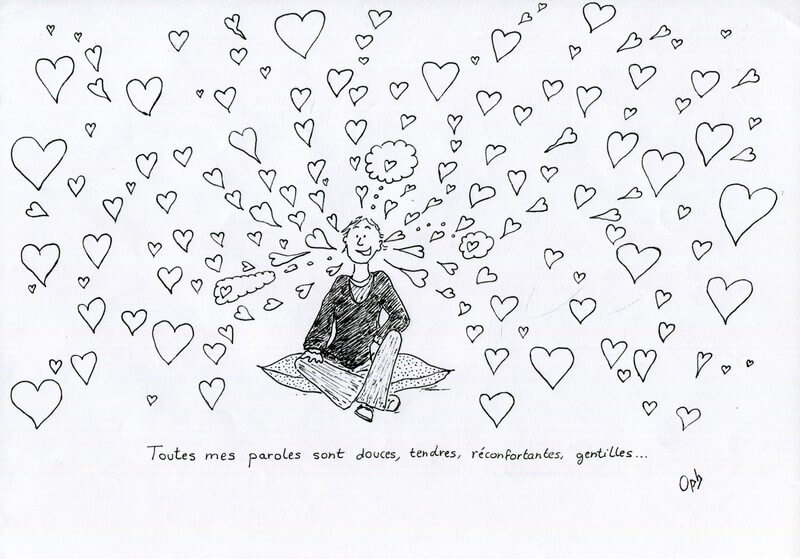 Toutes mes paroles sont douces, tendres, réconfortantes, gentilles...
Oph